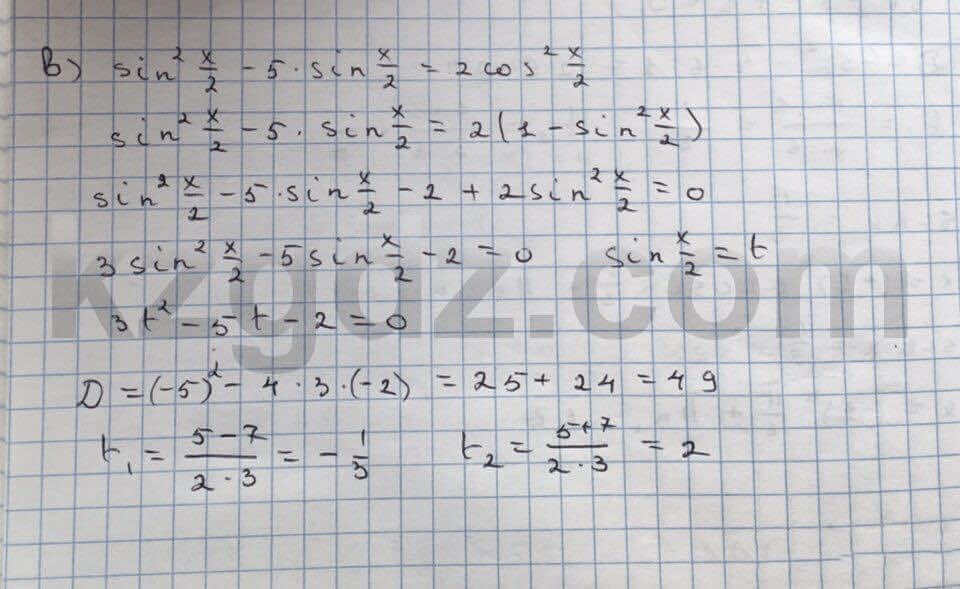 в) sin² x/2 - 5 · sin x/2 = 2 cos² x/2
sin² x/2 - 5 · sin x/2 = 2 (1 - sin² x/2)
sin² x/2 - 5 · sin x/2 - 2 + 2 sin² x/2 = 0
3 sin² x/2 - 5 sin x/2 - 2 = 0 sin x/2 = t
kzgdz.com
3t² - 5t - 2 = 0
D = (-5)² - 4 · 3 · (-2) = 25 + 24 = 49
t₁ = (5 - 7)/(2 · 3) = - 1/3 t₂ = (5 + 7)/(2 · 3) = 2